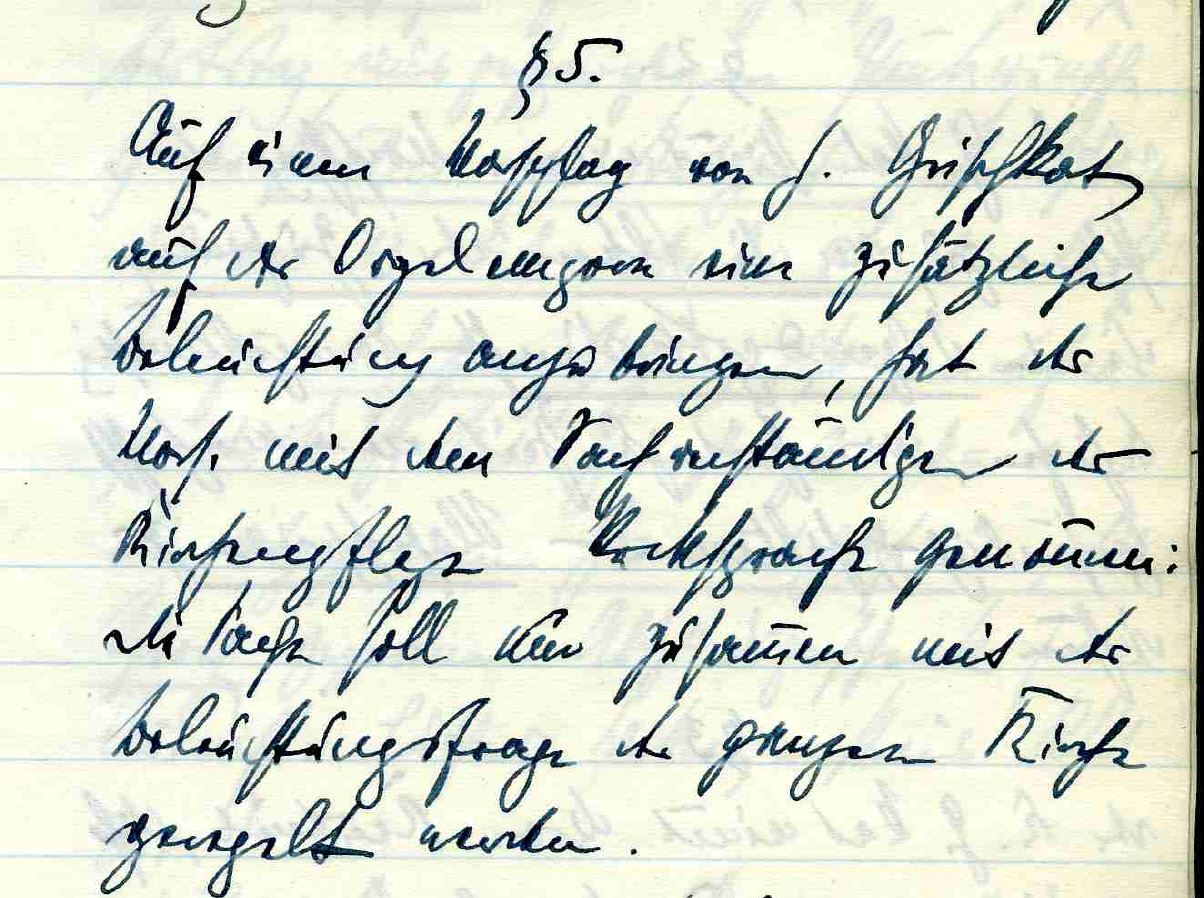 § 5.
Auf einen Vorschlag von H. Grischkat,
auf der Orgelempore eine zusätzliche
Beleuchtung anzubringen, hat der
Vors. mit den Sachverständigen der
Kirchenpflege Rücksprache genom̄en:
die Sache soll nur zusam̄en mit der
Beleuchtungsfrage der ganzen Kirche
geregelt werden.